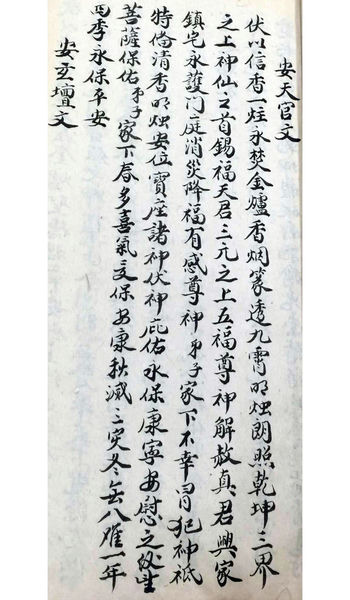 安天官文
伏以信香一炷永焚金爐香烟篆透九霄明烛朗照乾坤三界
之上神仙之首錫福天君三元之上五福尊神解赦真君興家
鎮宅永護门庭消災降福有感尊神弟子家下不幸冐犯神祇
特俻清香明烛安位寳座諸神伏神庇佑永保康寧安慰之後生
菩薩保佑弟子家下春多喜氣夏保安康秋减三灾冬無八难一年
四季永保平安
安玄壇文